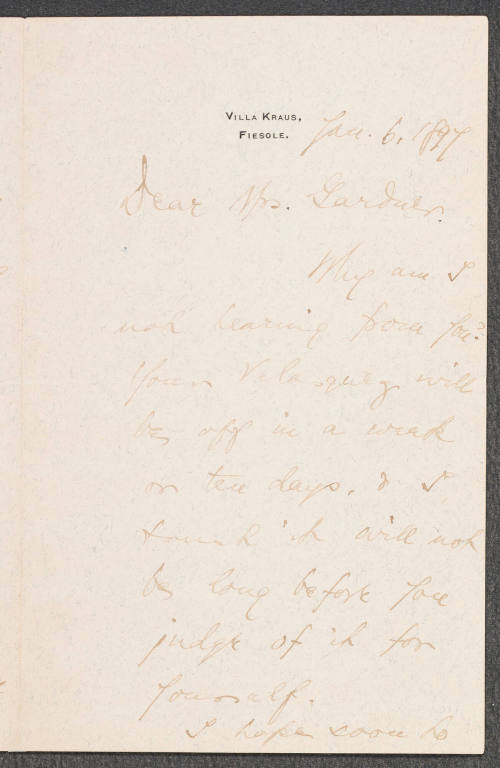 VILLA KRAUS,
FIESOLE.
Jan. 6, 1897
Dear Mrs. Gardner.
Why am I
not hearing from you?
Your Velasquez will
be off in a week
or ten days, & I
it will not
be long before you
judge of it for
yourself.
I hope soon to